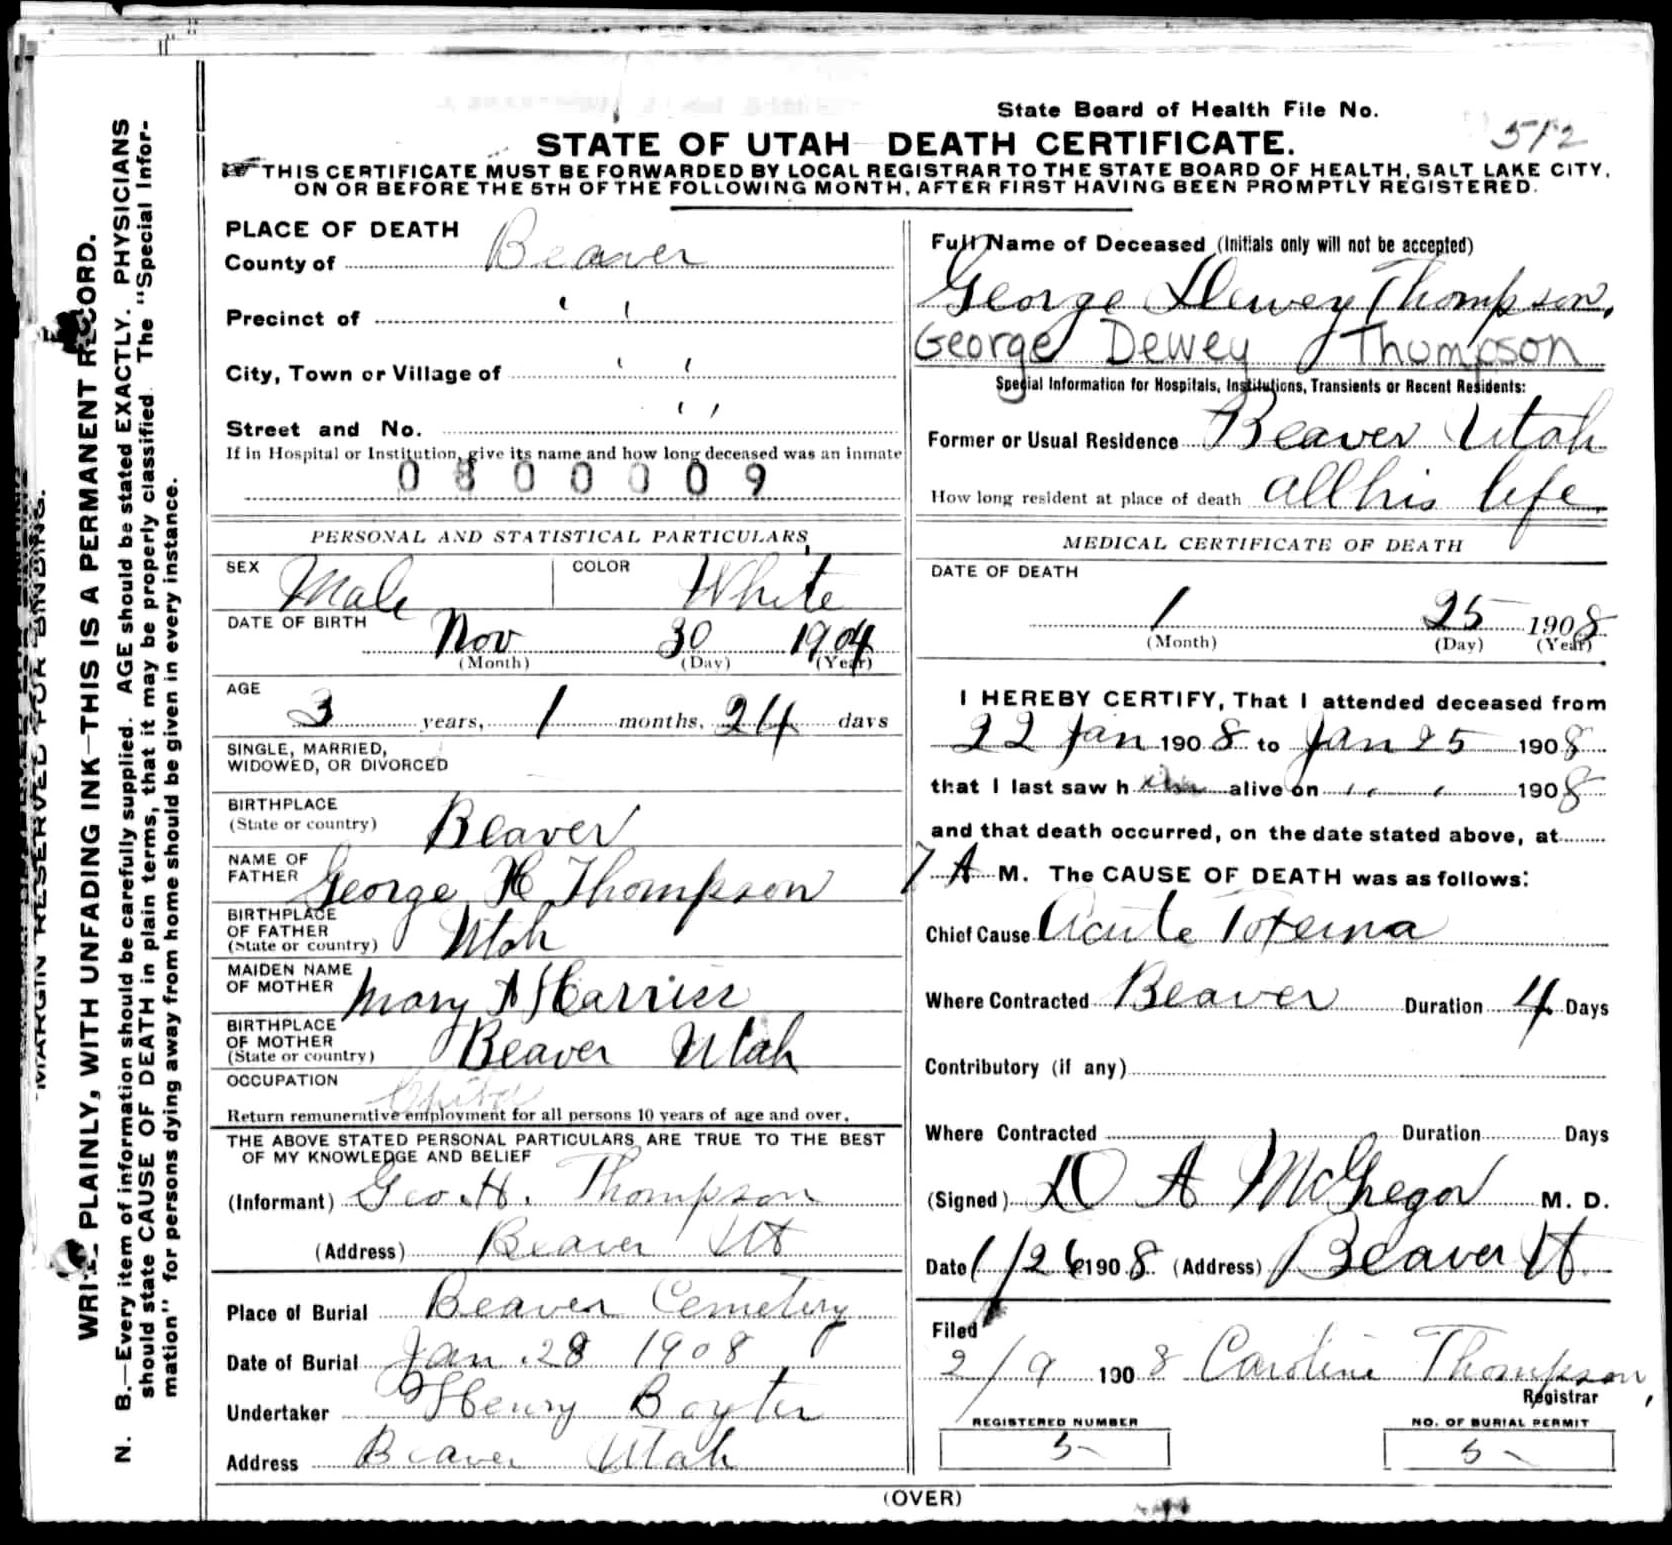 State Board of Health File No.
512
STATE OF UTAH DEATH CERTIFICATE.
THIS CERTIFICATE MUST BE FORWARDED BY LOCAL REGISTRAR TO THE STATE BOARD OF HEALTH, SALT LAKE CITY,
ON OR BEFORE THE 5TH OF THE FOLLOWING MONTH, AFTER FIRST HAVING BEEN PROMPTLY REGISTERED.
MARGIN RESERVED FOR BINDING.
WRITE PLAINLY, WITH UNFADING INK—THIS IS A PERMANENT RECORD.
N. B.—Every item of information should be carefully supplied. AGE should be stated EXACTLY. PHYSICIANS
should state CAUSE OF DEATH in plain terms, that it may be properly classified. The "Special Infor-
mation" for persons dying away from home should be given in every instance.
PLACE OF DEATH
County of Beaver
Precinct of " "
City, Town or Village of " "
Street and No. " "
If in Hospital or Institution, give its name and how long deceased was an inmate
0800009
PERSONAL AND STATISTICAL PARTICULARS
SEX Male COLOR White
DATE OF BIRTH Nov 30 1904
(Month) (Day) (Year)
AGE 3 years, 1 months, 24 days
SINGLE, MARRIED,
WIDOWED, OR DIVORCED
BIRTHPLACE
(State or country) Beaver
NAME OF
FATHER George H Thompson
BIRTHPLACE
OF FATHER
(State or country) Utah
MAIDEN NAME
OF MOTHER Mary A Harriss
BIRTHPLACE
OF MOTHER
(State or country) Beaver Utah
OCCUPATION
Return remunerative employment for all persons 10 years of age and over.
THE ABOVE STATED PERSONAL PARTICULARS ARE TRUE TO THE BEST
OF MY KNOWLEDGE AND BELIEF
(Informant) Geo. H. Thompson
(Address) Beaver Ut
Place of Burial Beaver Cemetery
Date of Burial Jan. 28 1908
Undertaker Henry Boyter
Address Beaver Utah
Full Name of Deceased (Initials only will not be accepted)
George Dewey Thompson,
George Dewey Thompson
Special Information for Hospitals, Institutions, Transients or Recent Residents:
Former or Usual Residence Beaver Utah
How long resident at place of death all his life
MEDICAL CERTIFICATE OF DEATH
DATE OF DEATH
1 25 1908
(Month) (Day) (Year)
I HEREBY CERTIFY, That I attended deceased from
22 Jan 1908 to Jan 25 1908
that I last saw him alive on " " 1908
and that death occurred, on the date stated above, at
7 A M. The CAUSE OF DEATH was as follows:
Chief Cause Acute Toxemia
Where Contracted Beaver Duration 4 Days
Contributory (if any)
Where Contracted Duration Days
(Signed) D A McGregor M. D.
Date 1/26 1908 (Address) Beaver Ut
Filed
2/9 1908 Caroline Thompson,
Registrar
REGISTERED NUMBER
5
NO. OF BURIAL PERMIT
5
(OVER)